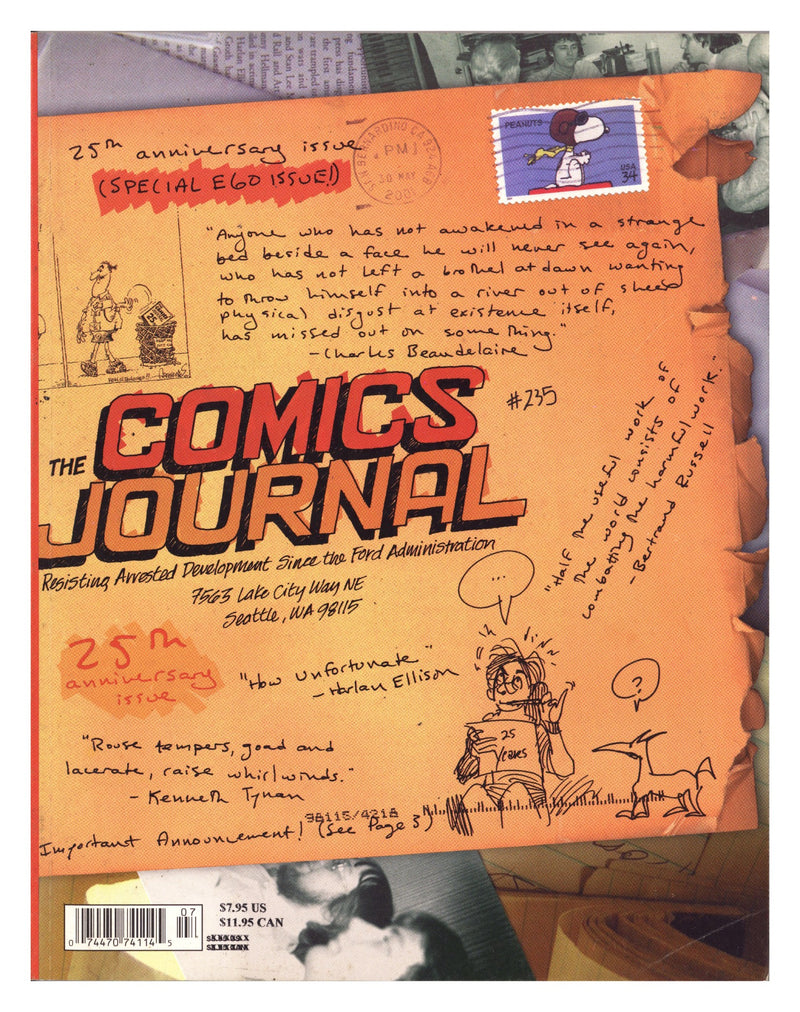 25th anniversary issue
(SPECIAL EGO ISSUE!)
SAN BERNARDINO CA 924
PM
30 MAY
2001
PEANUTS
USA
34
"Anyone who has not awakened in a strange
bed beside a face he will never see again,
who has not left a brothel at dawn wanting
to throw himself into a river out of sheer
physical disgust at existence itself,
has missed out on something."
- Charles Beaudelaire
THE COMICS
JOURNAL
#235
Resisting Arrested Development Since the Ford Administration
7563 Lake City Way NE
Seattle, WA 98115
"Half the useful work of
the world consists of
combatting the harmful work."
- Bertrand Russell
...
25th
anniversary
issue
"How unfortunate"
- Harlan Ellison
?
25
Years
"Rouse tempers, goad and
lacerate, raise whirlwinds."
- Kenneth Tynan
98115/4218
Important Announcement! (See Page 3)
07
0 74470 74114 5
$7.95 US
$11.95 CAN